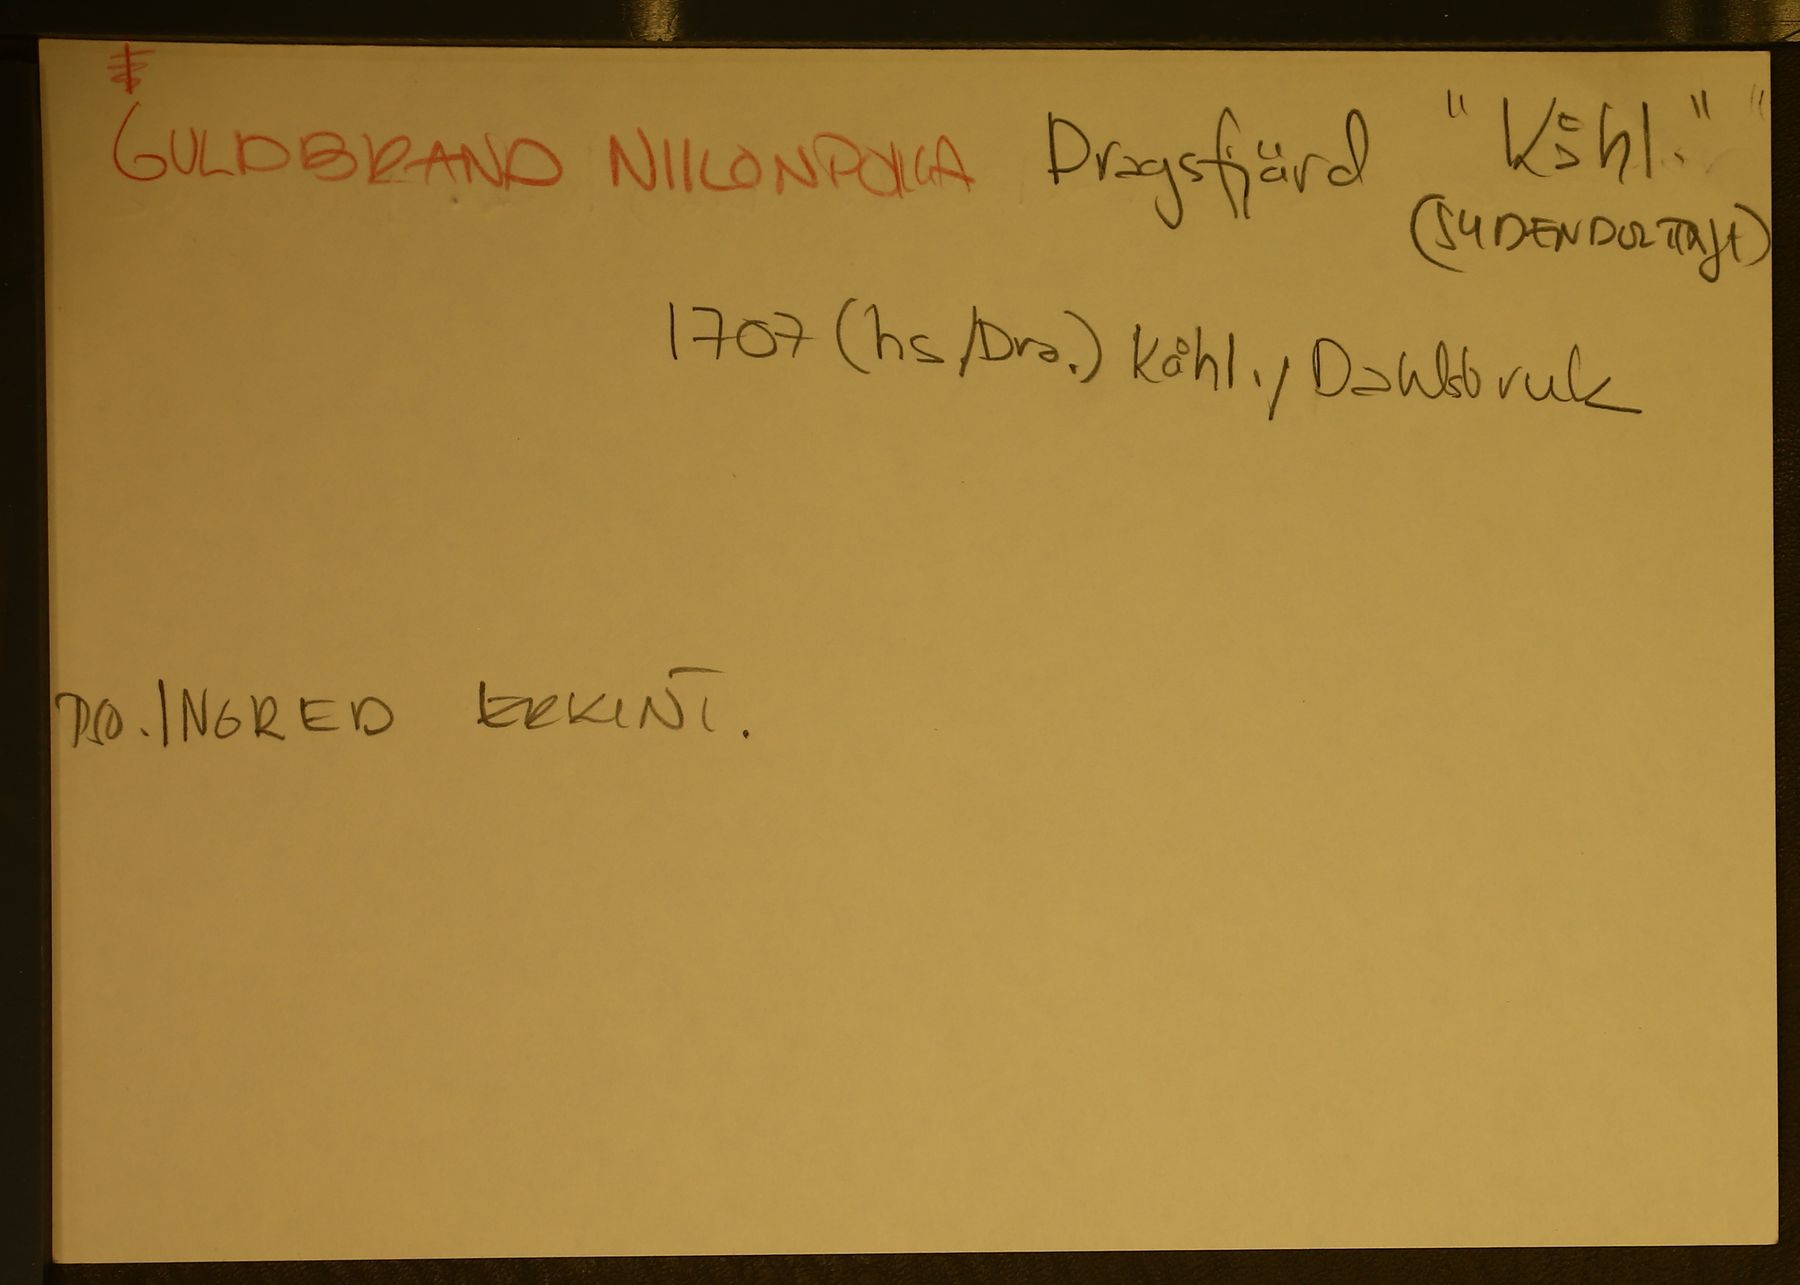 GULDBRAND NIILONPOIKA Dragsfjärd "Kåhl." "
(SYDENPOLTTAJA)
1707 (hs/Dra.) Kåhl., Dahlsbruk
PSO. INGRED ERKINT.